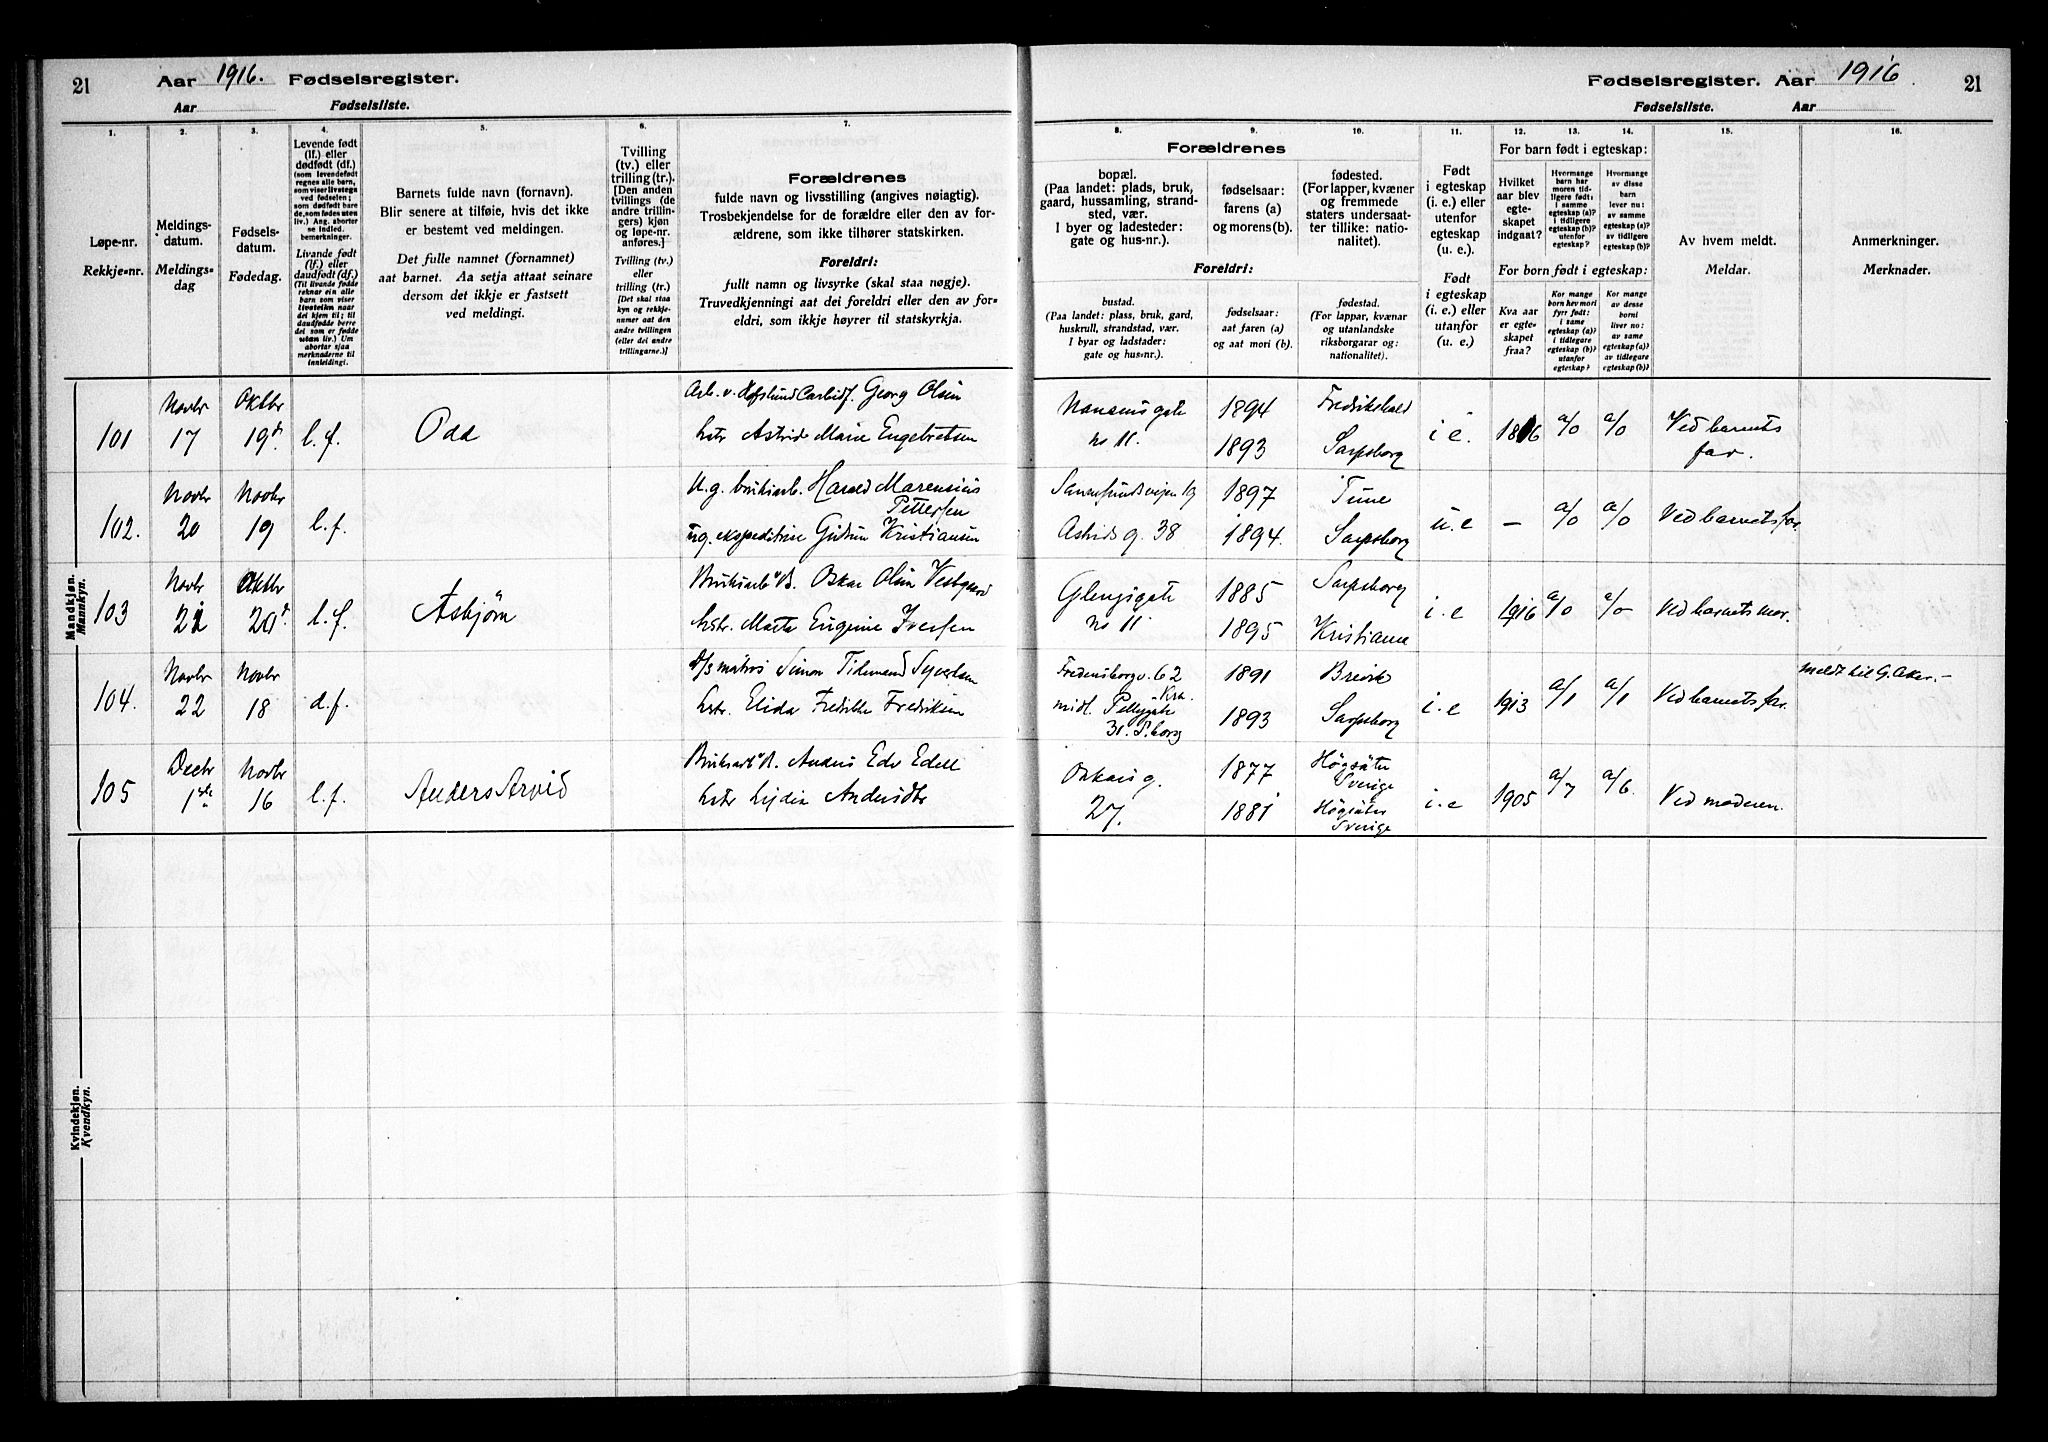 21
Aar 1916. Fødselsregister.
Aar Fødselsliste.
1.
Løpe-nr.
Rekkje-nr.
2.
Meldings-
datum.
Meldings-
dag
3.
Fødsels-
datum.
Fødedag.
4.
Levende født
(lf.) eller
dødfødt (df.)
(som levendefødt
regnes alle barn,
som viser livstegn
ved fødselen;
som dødfødt bare
de, som fødes uten
liv.) Ang. aborter
se indled.
bemerkninger.
Livande født
(lf.) eller
daudfødt (df.)
(Til livande fødde
reknar ein alle
barn som viser
livsteikn naar
dei kjem til; til
daudfødde berre
dei som er fødde
utan liv.) Um
abortar sjaa
merknaderne til
innleidingi.
5.
Barnets fulde navn (fornavn).
Blir senere at tilføie, hvis det ikke
er bestemt ved meldingen.
Det fulle namnet (fornamnet)
aat barnet. Aa setja attaat seinare
dersom det ikkje er fastsett
ved meldingi.
6.
Tvilling
(tv.) eller
trilling (tr.).
[Den anden
tvillings (de
andre trillin-
gers) kjøn
og løpe-nr.
anføres.]
Tvilling (tv.)
eller
trilling (tr.)
[Det skal staa
kyn og rekkje-
numer aat den
andre tvillingen
(eller dei andre
trillingarne.)]
7.
Forældrenes
fulde navn og livsstilling (angives nøiagtig).
Trosbekjendelse for de forældre eller den av for-
ældrene, som ikke tilhører statskirken.
Foreldri:
fullt namn og livsyrke (skal staa nøgje).
Truvedkjenningi aat dei foreldri eller den av for-
eldri, som ikkje høyrer til statskyrkja.
Mandkjøn.
Mannkyn.
101
Novbr
17
Oktbr
19de
l.f.
Odd
Arb. v. Hafslund Carbidf. Georg Olsen
hstr Astrid Marie Engebretsen
102.
Novbr
20
Novbr
19
l.f.
U.g. bruksarb. Harald Marensius
Pettersen
ug. ekspeditrise Gudrun Kristiansen
103
Novbr
21
Oktbr
20de
l.f.
Asbjørn
Bruksarb v B. Oskar Olsen Vestgaard
hstr. Marta Eugenie Iversen
104.
Novbr
22
Novbr
18
d.f.
D/s matros Simon Tidemand Syvertsen
hstr. Elida Fredrikke Fredriksen
105
Decbr
1ste
Novbr
16
l.f.
Anders Arvid
Bruksarb v B. Anders Edv Edell
hstr Lydia Andersdtr
Kvindekjøn.
Kvendkyn.
Fødselsregister. Aar 1916
21
Fødselsliste. Aar
8.
Forældrenes
bopæl.
(Paa landet: plads, bruk,
gaard, hussamling, strand-
sted, vær.
I byer og ladesteder:
gate og hus-nr.).
Foreldri:
bustad.
(Paa landet: plass, bruk, gard,
huskrull, strandstad, vær.
I byar og ladstader:
gate og hus-nr.).
9.
fødselsaar:
farens (a)
og morens (b).
fødselsaar:
aat faren (a)
og aat mori (b).
10.
fødested.
(For lapper, kvæner
og fremmede
staters undersaat-
ter tillike: natio-
nalitet).
fødestad.
(For lappar, kvænar
og utanlandske
riksborgarar og:
nationalitet).
11.
Født
i egteskap
(i. e.) eller
utenfor
egteskap
(u. e.).
Født
i egteskap
(i. e.) eller
utanfor
(u. e.)
For barn født i egteskap:
12.
Hvilket
aar blev
egte-
skapet
indgaat?
13.
Hvormange
barn har
moren tid-
ligere født:
i samme
egteskap (a)?
i tidligere
egteskap (b)?
utenfor
egteskap?
14.
Hvormange
av disse
barn
lever nu:
av samme
egteskap (a)?
av tidligere
egteskap (b)?
For born født i egteskap:
Kva aar
er egte-
skapet
fraa?
Kor mange
born hev mori
fyrr født:
i same
egteskap (a)?
i tidlegare
egteskap (b)?
utanfor
egteskap?
Kor mange
av desse
borni
liver no:
av same
egteskap (a)?
av tidlegare
egteskap (b)?
15.
Av hvem meldt.
Meldar.
16.
Anmerkninger.
Merknader.
Nansens gate
no 11.
1894
1893
Fredrikshald
Sarpsborg
i e.
1916
a/0
a/0
Ved barnets
far.
Sannesundsveien 19
Astrids g. 38
1897
1894.
Tune
Sarpsborg
u. e
—
a/0
a/0
Ved barnets far.
Glengsgate
no 11.
1885
1895
Sarpsborg
Kristiania
i. e
1916
a/0
a/0
Ved barnets mor.
Fredensborgv. 62
Kra.
midl. Pellygate
31. S.borg
1891
1893
Brevik
Sarpsborg
i. e
1913
a/1
a/1
Ved barnets far.
Meldt til G. Aker.—
Oskars g.
27.
1877
1881
Högsäter
Sverige
Högsäter
Sverige
i. e
1905
a/7
a/6.
Ved moderen.